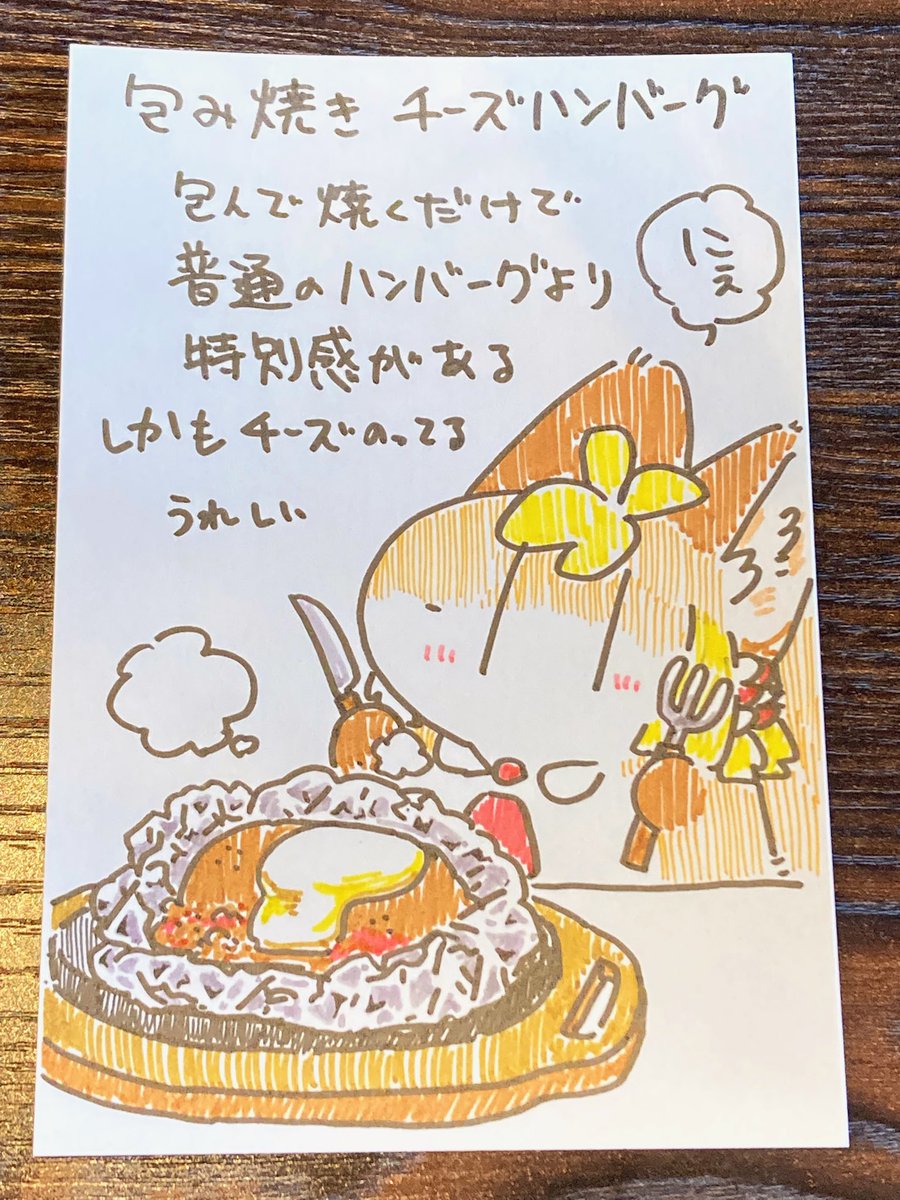 包み焼き チーズハンバーグ
包んで焼くだけで
普通のハンバーグより
特別感がある
しかもチーズのってる
うれしい
にえ